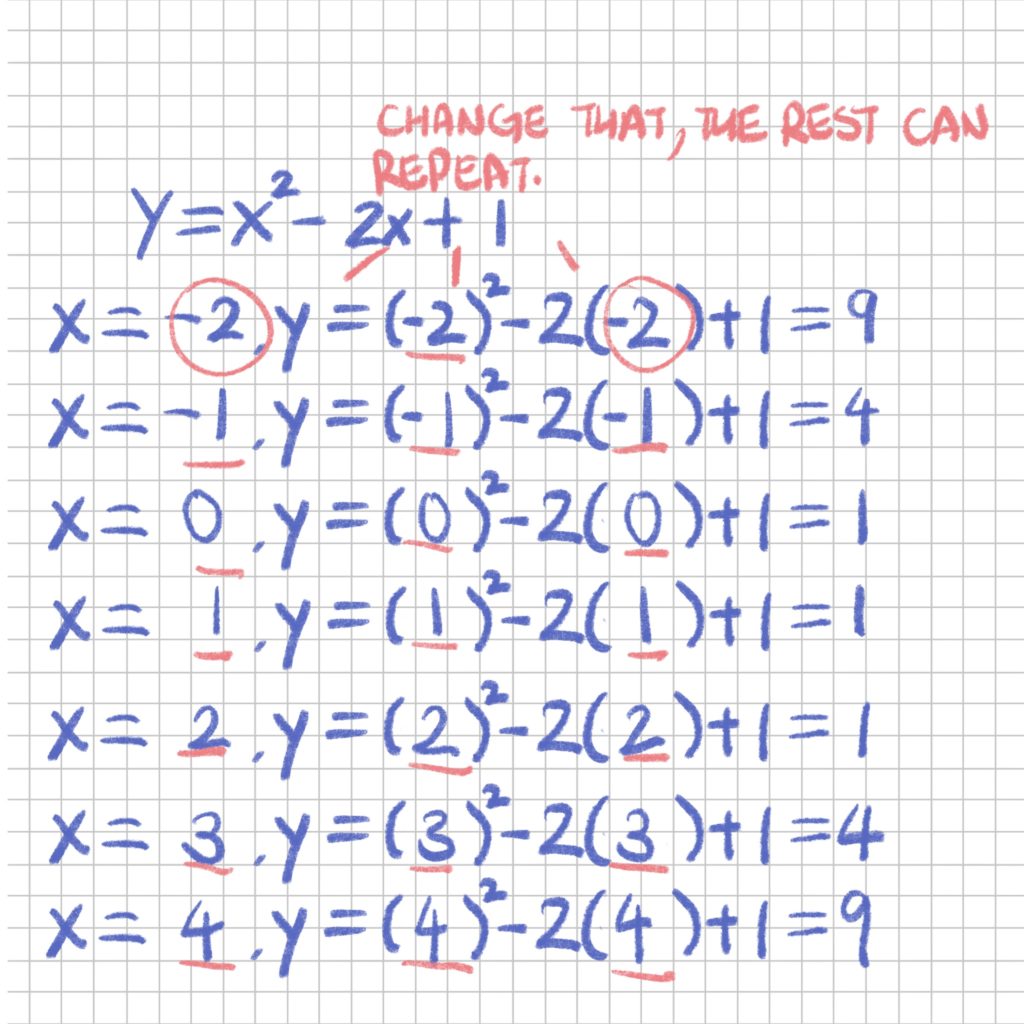 CHANGE THAT, THE REST CAN
REPEAT.
y = x² - 2x + 1
x = -2, y = (-2)² - 2(-2) + 1 = 9
x = -1, y = (-1)² - 2(-1) + 1 = 4
x = 0, y = (0)² - 2(0) + 1 = 1
x = 1, y = (1)² - 2(1) + 1 = 1
x = 2, y = (2)² - 2(2) + 1 = 1
x = 3, y = (3)² - 2(3) + 1 = 4
x = 4, y = (4)² - 2(4) + 1 = 9